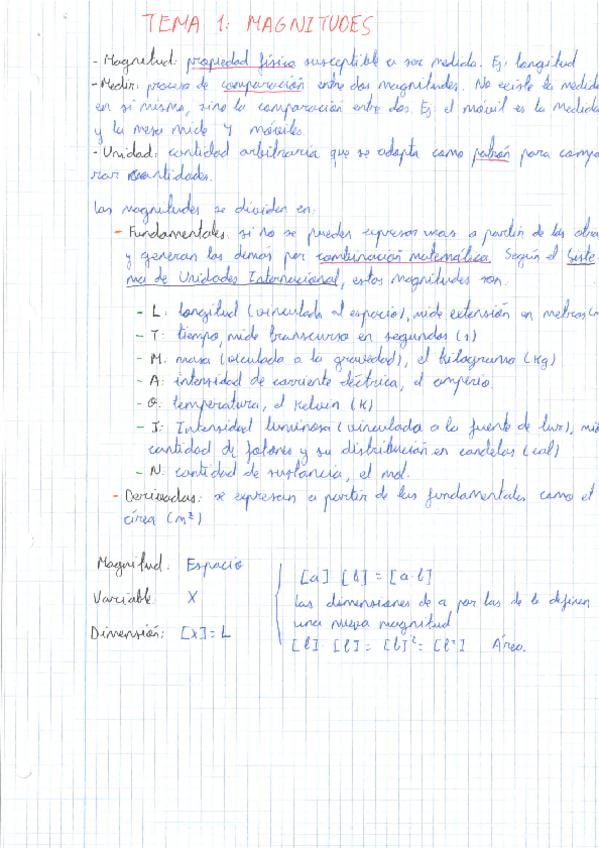 TEMA 1: MAGNITUDES
- Magnitud: propiedad física susceptible a ser medida. Ej: longitud
- Medir: proceso de comparación entre dos magnitudes. No existe la medida
en si misma, sino la comparación entre dos. Ej el móvil es la medida
y la mesa mide 4 móviles.
- Unidad: cantidad arbitraria que se adopta como patrón para compa
rar cantidades.
Las magnitudes se dividen en:
- Fundamentales: si no se pueden expresar unas a partir de las otra
y generan las demás por combinación matemática. Según el Siste
ma de Unidades Internacional, estas magnitudes son:
- L: longitud (vinculada al espacio), mide extensión en metros (m
- T: tiempo, mide transcurso en segundos (s)
- M: masa (viculada a la gravedad), el kilogramo (Kg)
- A: intensidad de corriente eléctrica, el amperio.
- Θ: temperatura, el Kelvin (K)
- J: Intensidad luminosa (vinculada a la fuente de luz), mi
cantidad de fotones y su distribución en candelas (cal)
- N: cantidad de sustancia, el mol.
- Derivadas: se expresan a partir de las fundamentales como el
área (m²)
Magnitud: Espacio
Variable X
Dimensión: [x] = L
[a] [b] = [a·b]
Las dimensiones de a por las de b definen
una nueva magnitud
[l] · [l] = [l]² = [l²] Área.